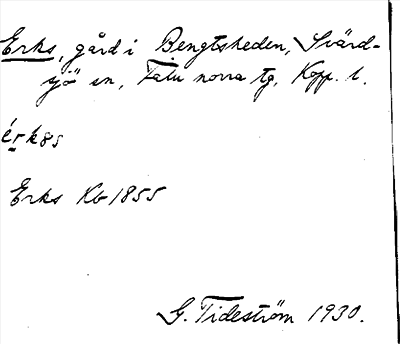 Erks, gård i Bengtsheden, Svärd-
sjö sn, Falu norra tg, Kopp. l.
Erks Kb 1855
G. Tideström 1930.